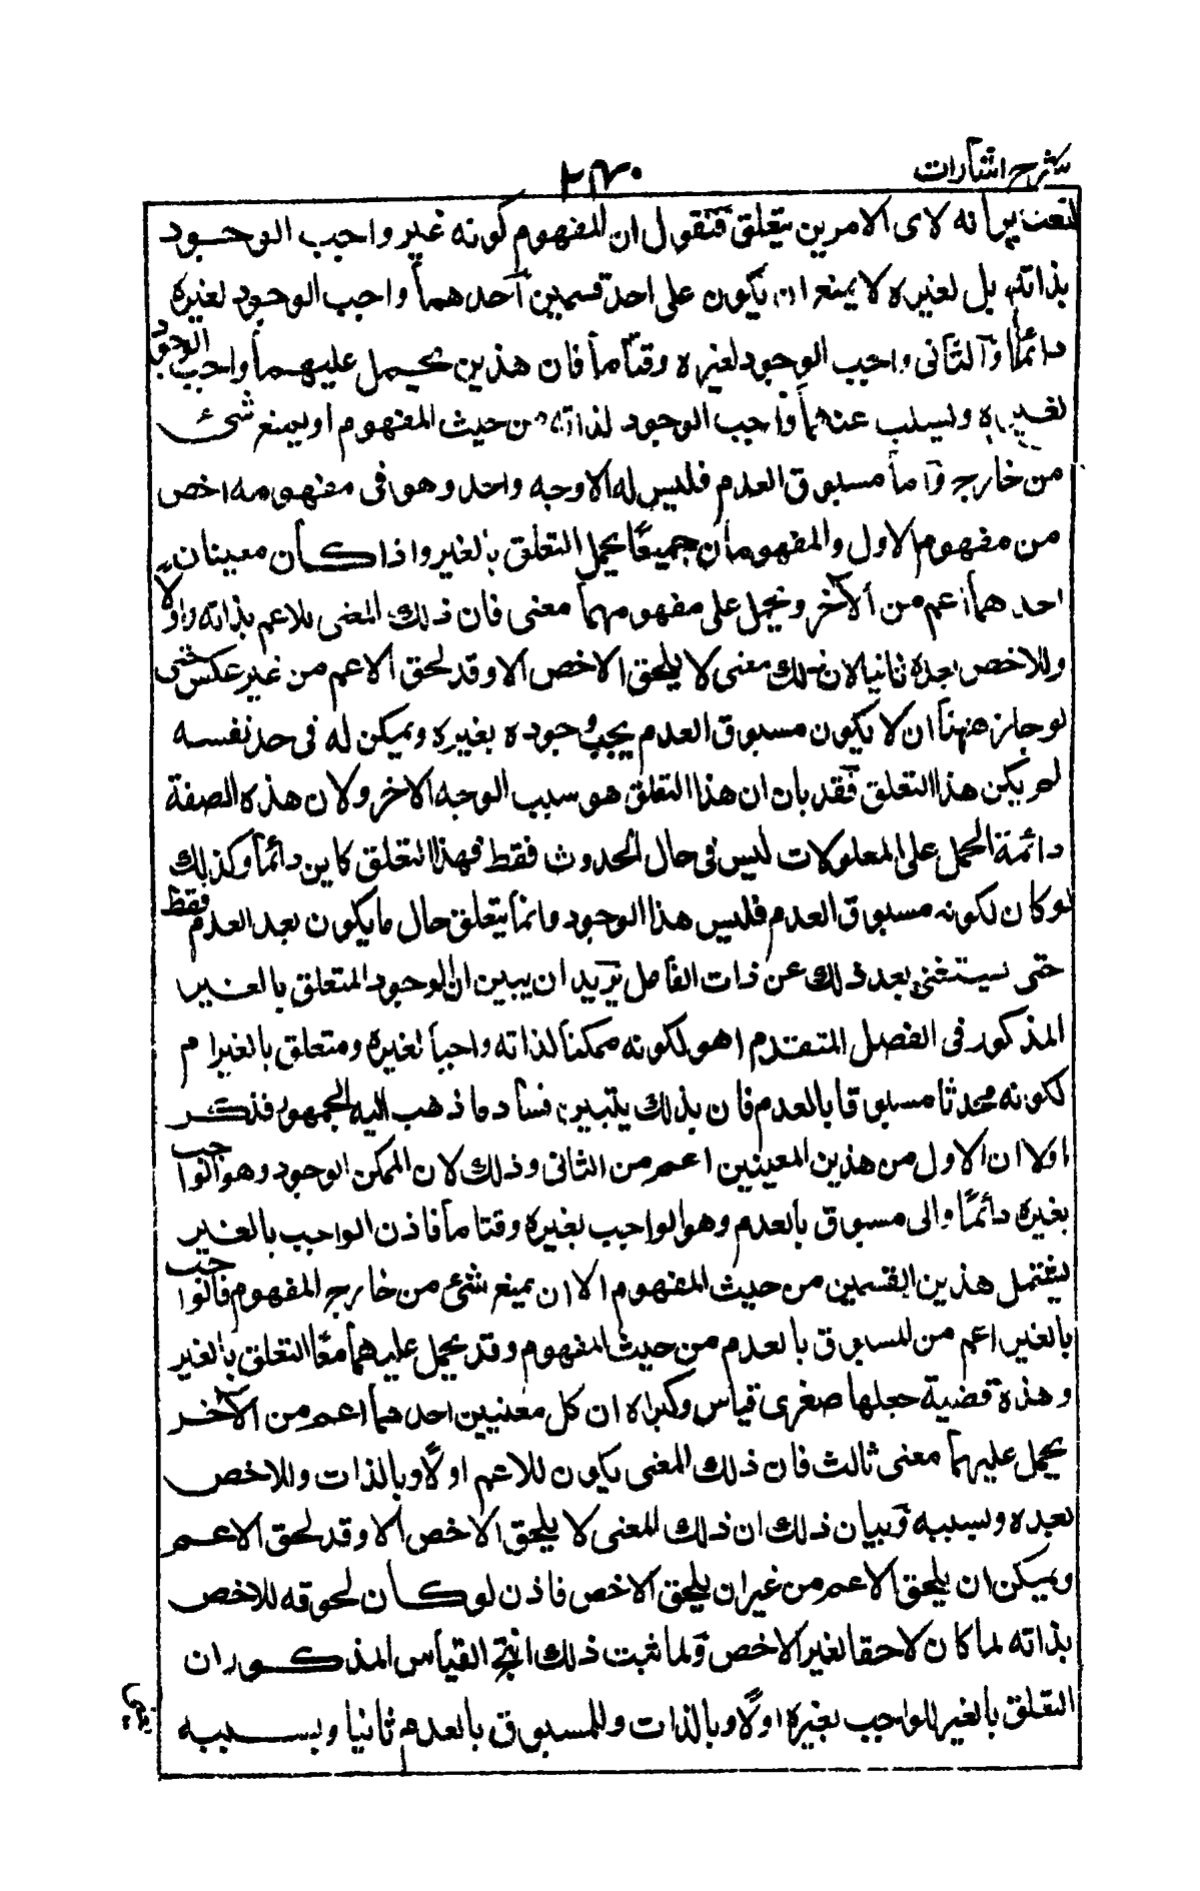 شرح اشارات
۲۴۰
لنعتبر انه لای الامرین یتعلق فنقول ان المفهوم کونه غیر واجب الوجود
بذاته بل لغیره لا یمنع ان یکون علی احد قسمین احدهما واجب الوجود لغیره
دائماً والثانی واجب الوجود لغیره وقتاً ما فان هذین یحمل علیهما واجب الوجود
لغیره ویسلب عنهما واجب الوجود لذاته من حیث المفهوم او یمنع شئ
من خارج واما مسبوق العدم فلیس له الا وجه واحد وهو فی مفهومه اخص
من مفهوم الاول والمفهومان جمیعاً یحمل التعلق بالغیر واذا کان معینان
احدهما اعم من الآخر ویحمل علی مفهومهما معنی فان ذلک المعنی للاعم بذاته واولا
وللاخص بعده ثانیا لان ذلک معنی لا یلحق الاخص الا وقد لحق الاعم من غیر عکس حتی
لو جاز ههنا ان لا یکون مسبوق العدم یجب وجوده بغیره ویمکن له فی حد نفسه
لم یکن هذا التعلق فقد بان ان هذا التعلق هو سبب الوجه الاخر ولان هذه الصفة
دائمة الحمل علی المعلولات لیس فی حال الحدوث فقط فهذا التعلق کاین دائماً وکذلک
لو کان لکونه مسبوق العدم فلیس هذا الوجود وانما یتعلق حال ما یکون بعد العدم فقط
حتی یستغنی بعد ذلک عن ذات الفاعل یرید ان یبین ان الوجود المتعلق بالغیر
المذکور فی الفصل المتقدم اهو لکونه ممکناً لذاته واجباً لغیره ومتعلق بالغیر ام
لکونه محدثا مسبوقا بالعدم فان بذلک یتبین فساد ما ذهب الیه الجمهور فذکر
اولا ان الاول من هذین المعینین اعم من الثانی وذلک لان الممکن الوجود وهو الواجب
بغیره دائماً والی مسبوق بالعدم وهو الواجب بغیره وقتا ما فاذن الواجب بالغیر
یشتمل هذین القسمین من حیث المفهوم الا ان یمنع شئ من خارج المفهوم فالواجب
بالغیر اعم من المسبوق بالعدم من حیث المفهوم وقد یحمل علیهما معاً التعلق بالغیر
وهذه قضیة جعلها صغری قیاس وکبراه ان کل معنیین احدهما اعم من الآخر
یحمل علیهما معنی ثالث فان ذلک المعنی یکون للاعم اولاً وبالذات وللاخص
بعده وبسببه وبیان ذلک ان ذلک المعنی لا یلحق الاخص الا وقد لحق الاعم
ویمکن ان یلحق الاعم من غیر ان یلحق الاخص فاذن لو کان لحوقه للاخص
بذاته لما کان لاحقا لغیر الاخص ولما ثبت ذلک انتج القیاس المذکور ان
التعلق بالغیر للواجب بغیره اولاً وبالذات وللمسبوق بالعدم ثانیا وبسببه